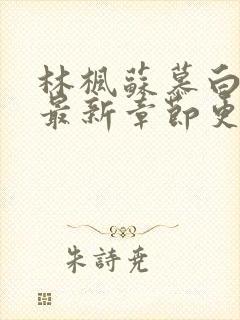 林楓蘇慕白
最新章節更
朱詩尭